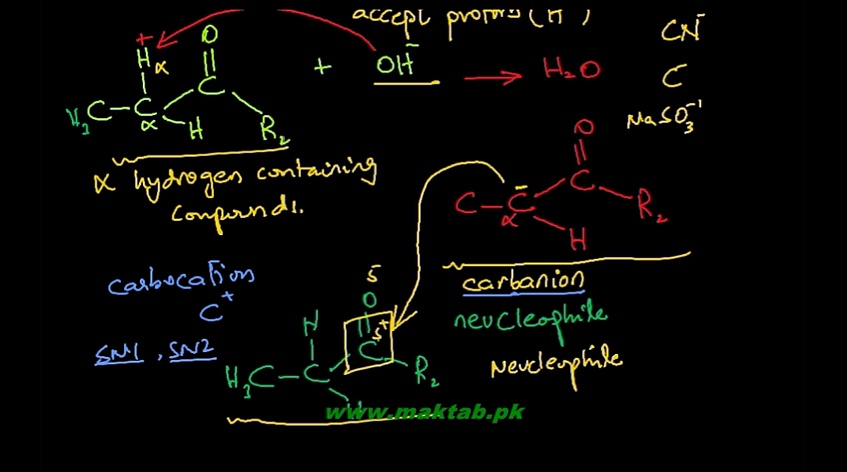 accept protons (H⁺)
CN⁻
C⁻
NaSO₃⁻¹
H⁺ α O
H₃C – C – C + OH⁻ → H₂O
α H R₂
α hydrogen containing
compounds.
O
C – C⁻ – C – R₂
α H
carbanion
neucleophile
Neucleophile
carbocation
C⁺
SN1 , SN2
δ⁻
H O
δ⁺
H₃C – C – C – R₂
www.maktab.pk